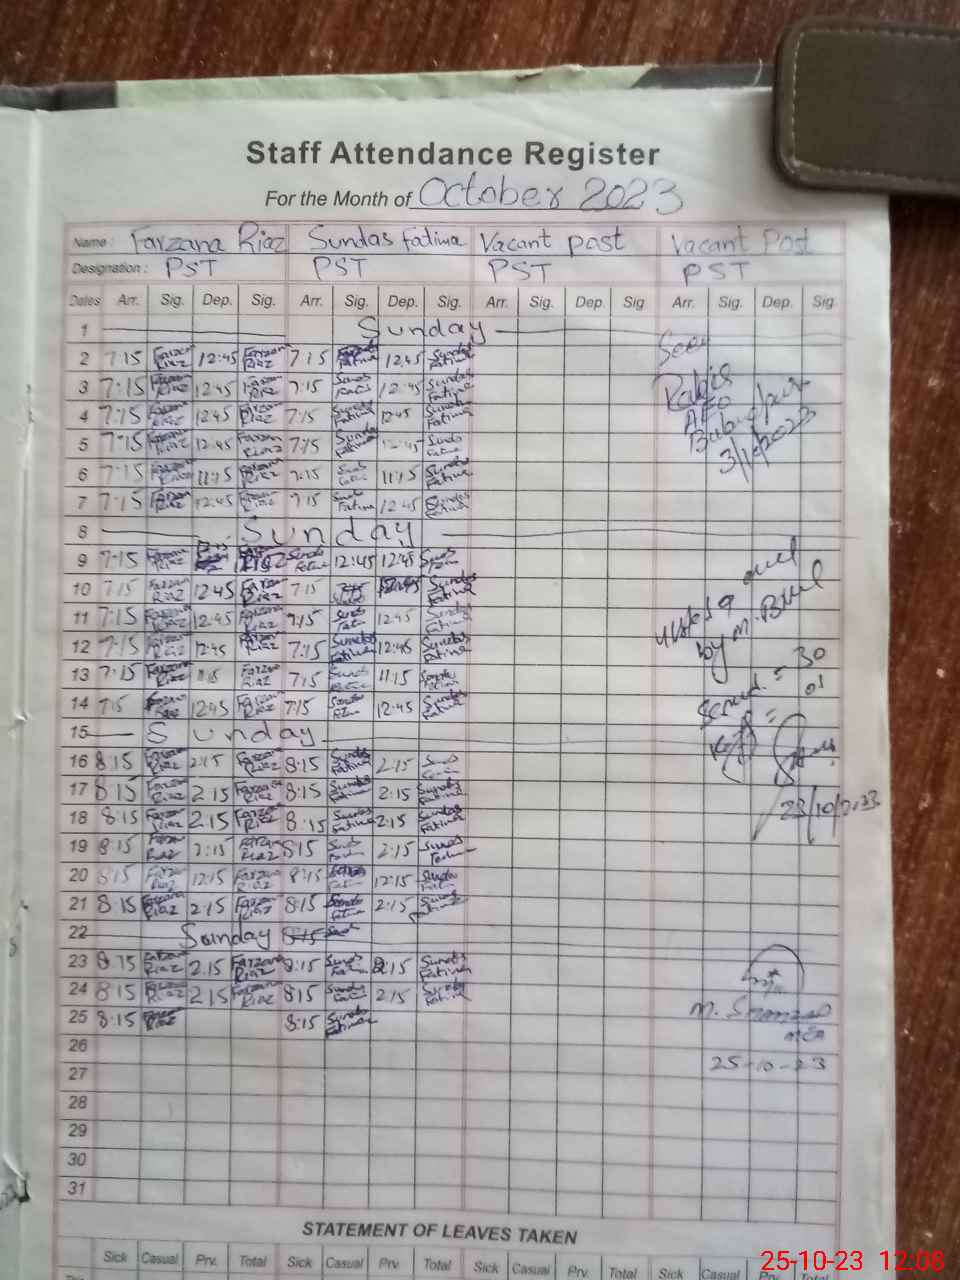 Staff Attendance Register
For the Month of October 2023
Name: Farzana Riaz Sundas Fatima Vacant Post Vacant Post
Designation: PST PST PST PST
Dates Arr. Sig. Dep. Sig. Arr. Sig. Dep. Sig. Arr. Sig. Dep. Sig Arr. Sig. Dep. Sig.
1 Sunday
2 7:15 Farzana Riaz 12:45 Farzana Riaz 7:15 Fatima 12:45 Sundas Fatima
3 7:15 Farzana Riaz 12:45 Farzana Riaz 7:15 12:45 Sundas Fatima
4 7:15 Farzana Riaz 12:45 Farzana Riaz 7:15 Sundas Fatima 12:45 Sundas Fatima
5 7:15 Farzana Riaz 12:45 Farzana Riaz 7:15 Sundas Fatima 12:45 Sundas Fatima
6 7:15 Farzana Riaz 11:15 Farzana Riaz 7:15 11:15 Sundas Fatima
7 7:15 Farzana Riaz 12:45 Farzana Riaz 7:15 Fatima 12:45 Sundas Fatima
8 Sunday
9 7:15 Farzana Riaz Riaz Sundas Fatima 12:45 12:45
10 7:15 Farzana Riaz 12:45 Farzana Riaz 7:15 12:45 Sundas Fatima
11 7:15 Farzana Riaz 12:45 Farzana Riaz 7:15 12:45 Sundas Fatima
12 7:15 Farzana Riaz 12:45 Farzana Riaz 7:15 Sundas Fatima 12:45 Sundas Fatima
13 7:15 Farzana Riaz 11:15 Farzana Riaz 7:15 11:15
14 7:15 12:45 Farzana Riaz 7:15 12:45 Sundas Fatima
15 Sunday
16 8:15 Farzana Riaz 2:15 Farzana Riaz 8:15 Sundas Fatima 2:15
17 8:15 Farzana Riaz 2:15 Farzana Riaz 8:15 Sundas Fatima 2:15 Sundas Fatima
18 8:15 Farzana Riaz 2:15 Farzana Riaz 8:15 Sundas Fatima 2:15 Sundas Fatima
19 8:15 Farzana Riaz 2:15 Farzana Riaz 8:15 2:15
20 8:15 Farzana Riaz 12:15 Farzana Riaz 8:15 12:15
21 8:15 Farzana Riaz 2:15 Farzana Riaz 8:15 Sundas Fatima 2:15 Sundas Fatima
22 Sunday 8:15
23 8:15 Farzana Riaz 2:15 Farzana Riaz 8:15 Sundas Fatima 2:15 Sundas Fatima
24 8:15 Farzana Riaz 2:15 Farzana Riaz 8:15 2:15 Sundas Fatima
25 8:15 8:15 Sundas Fatima
26
27
28
29
30
31
Seen
AEO
visited
by M.
30
01
23/10/2023
M.
25-10-23
STATEMENT OF LEAVES TAKEN
Sick Casual Prv. Total Sick Casual Prv. Total Sick Casual Prv. Total Sick Casual Prv. Total
25-10-23 12:08